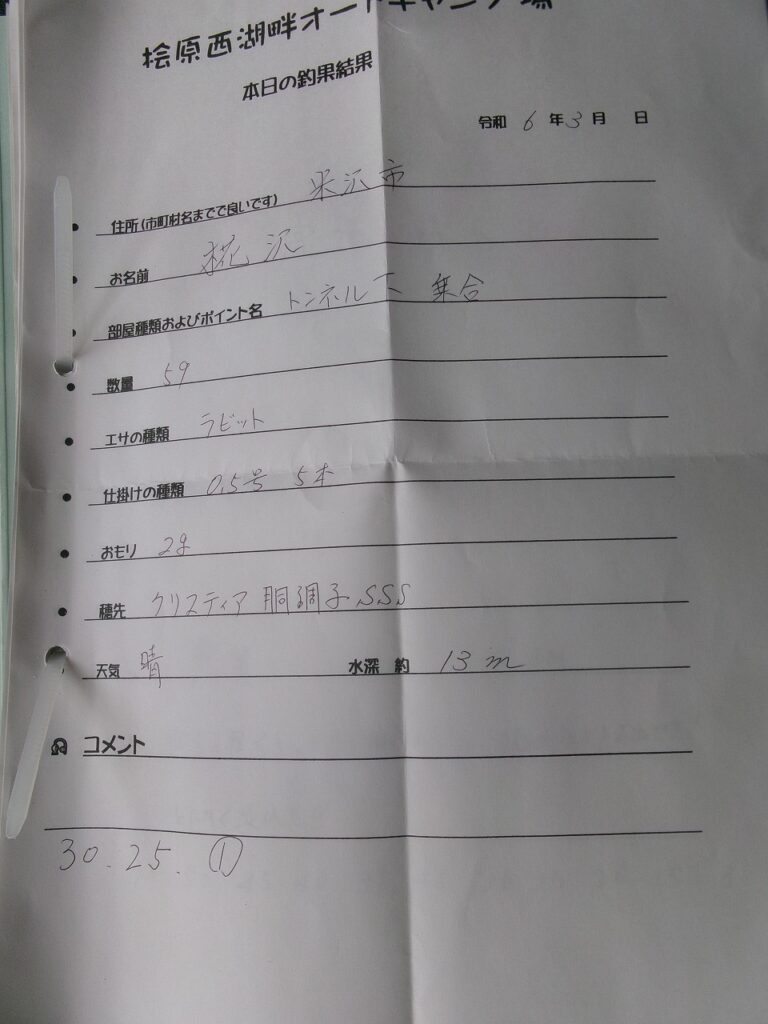 桧原西湖畔オートキャンプ場
本日の釣果結果
令和 6 年 3 月 日
住所(市町村名までで良いです) 米沢市
お名前 椛沢
部屋種類およびポイント名 トンネル下 乗合
数量 59
エサの種類 ラビット
仕掛けの種類 0.5号 5本
おもり 2g
穂先 クリスティア 胴調子 SSS
天気 晴 水深 約 13m
コメント
30.25.①